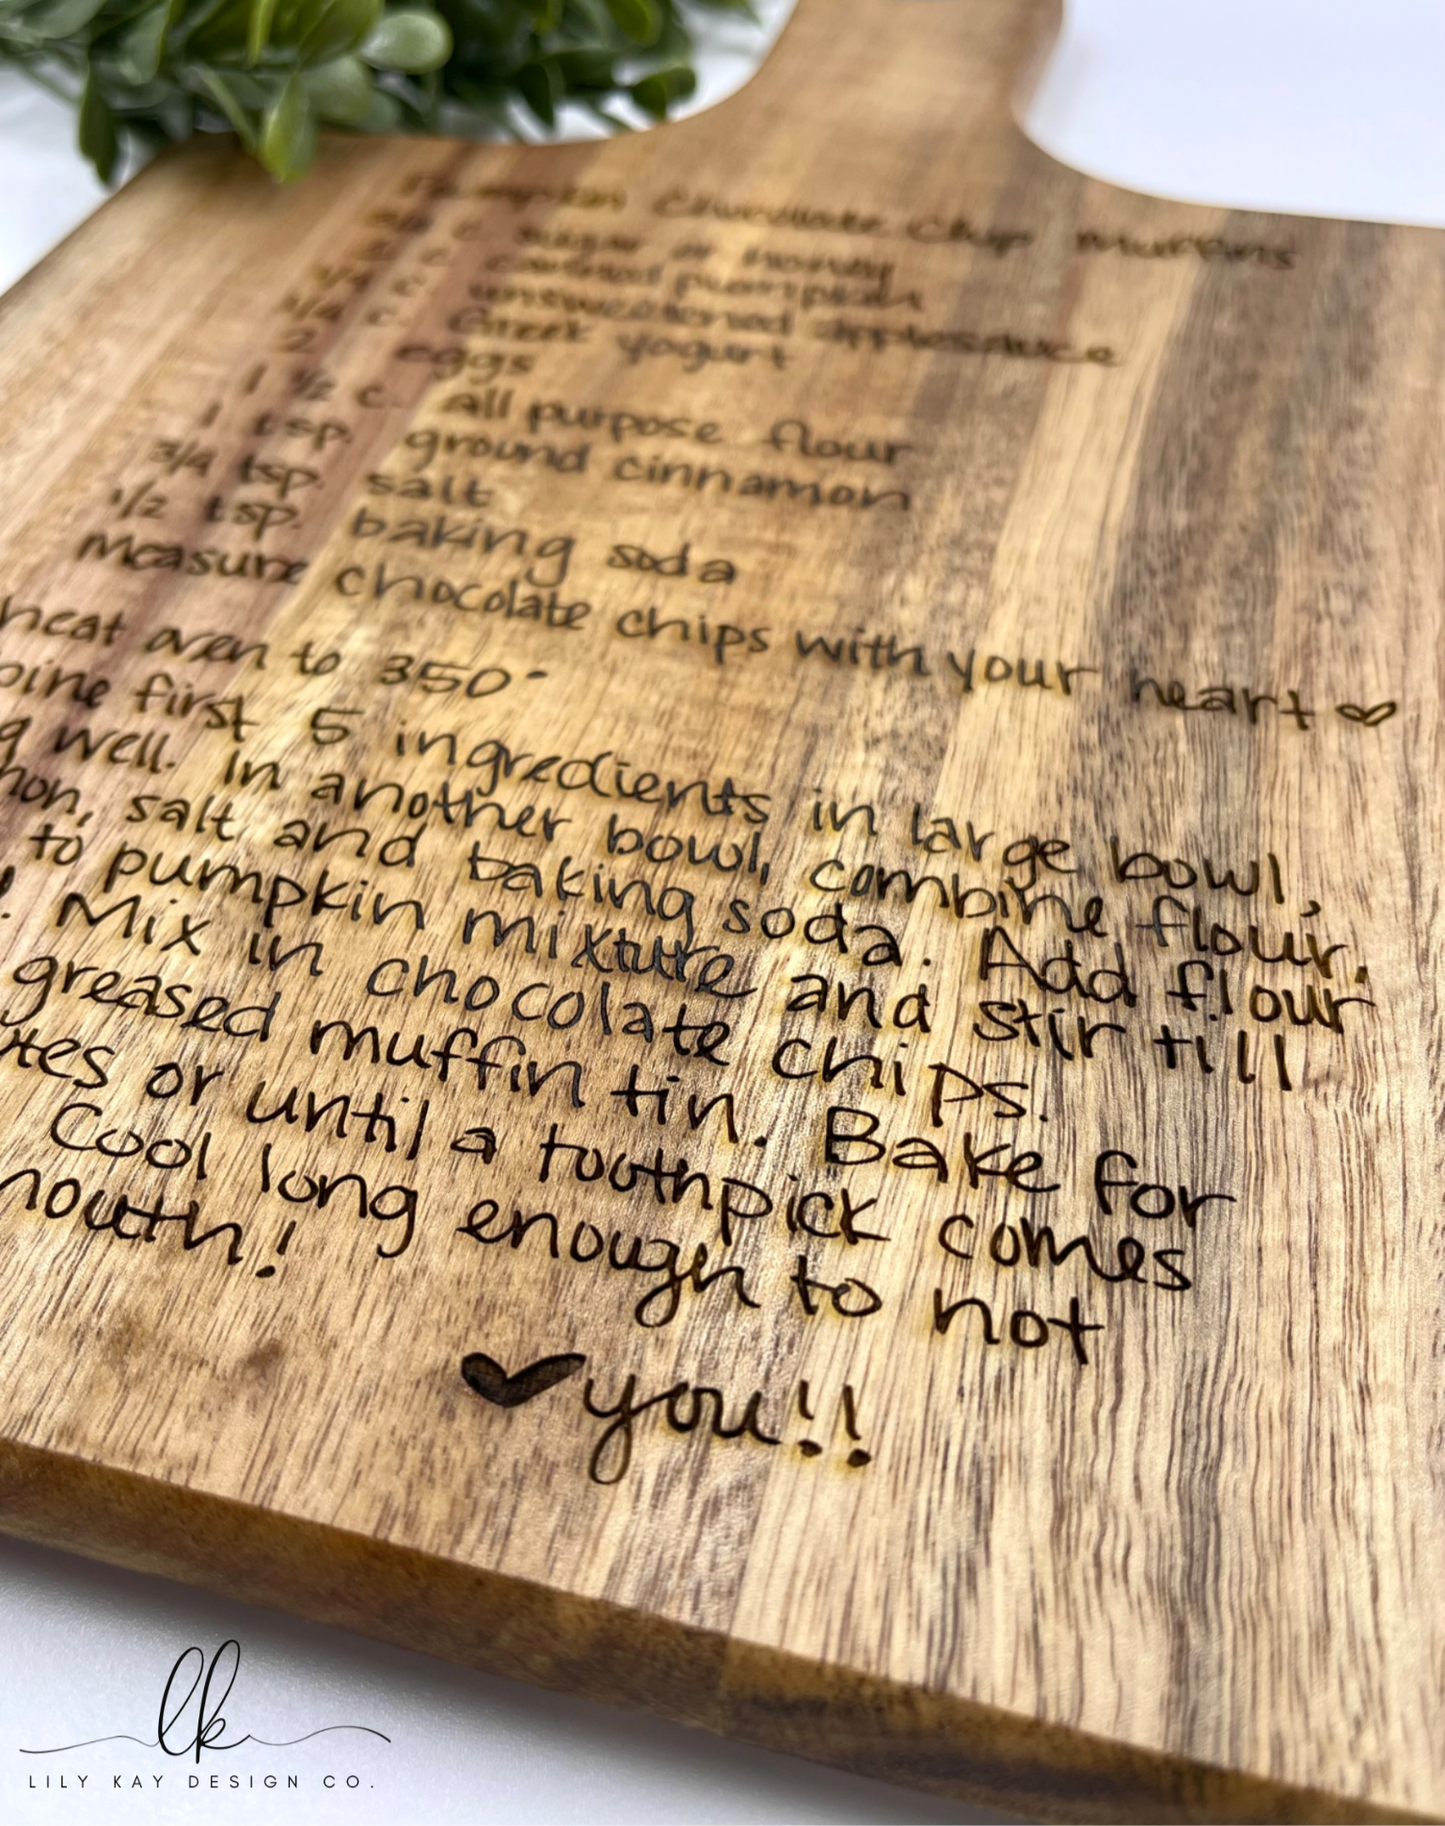 Pumpkin Chocolate Chip Muffins
c. sugar or honey
c. canned pumpkin
1/4 c. unsweetened applesauce
1/4 c. Greek yogurt
2 eggs
1 1/2 c. all purpose flour
1 tsp. ground cinnamon
3/4 tsp. salt
1/2 tsp. baking soda
Measure chocolate chips with your heart ♡
heat oven to 350°
bine first 5 ingredients in large bowl,
g well. In another bowl, combine flour,
mon, salt and baking soda. Add flour
to pumpkin mixture and stir till
d. Mix in chocolate chips.
greased muffin tin. Bake for
tes or until a toothpick comes
Cool long enough to not
mouth!
♥ you!!
lk
LILY KAY DESIGN CO.